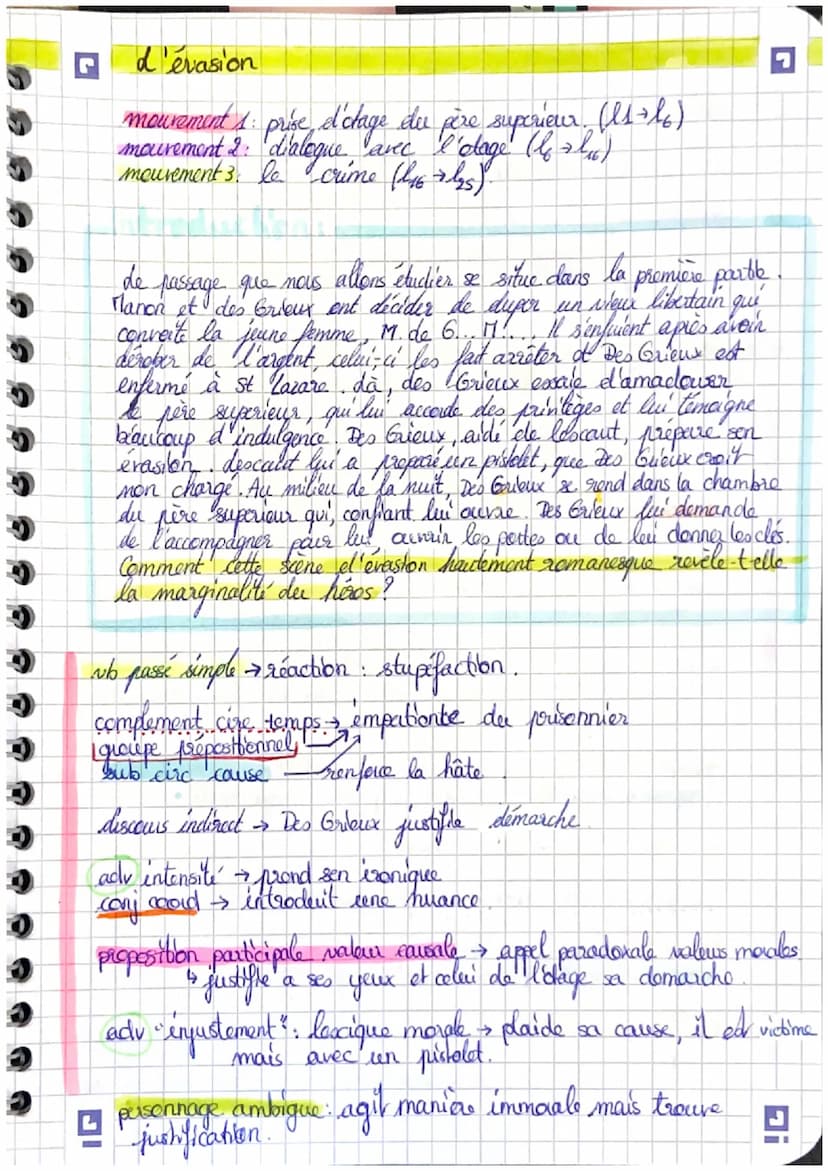 d'évasion
mouvement 1: prise d'otage du père superieur. (l1→l6)
mouvement 2: dialogue avec l'otage (l6→l16)
mouvement 3: le crime (l16→l25).
Introduction:
Le passage que nous allons étudier se situe dans la première partie.
Manon et des Grieux ont décider de duper un vieux libertain qui
convoite la jeune femme, M. de G... M!... Il s'enfuient après avoir
dérober de l'argent, celui-ci les fait arrêter et Des Grieux est
enfermé à St Lazare. Là, des Grieux essaie d'amadouer
le père superieur, qui lui accorde des privilèges et lui témoigne
beaucoup d'indulgence. Des Grieux, aidé de Lescaut, prépare son
évasion. Lescaut lui a un pistolet, que Des Grieux croit
non chargé. Au milieu de la nuit, Des Grieux se rend dans la chambre
du père superieur qui, confiant lui ouvre. Des Grieux lui demande
de l'accompagner pour lui ouvrir les portes ou de lui donner les clés.
Comment cette scène d'évasion hautement romanesque revèle-t-elle
la marginalité du héros?
vb passé simple → réaction : stupéfaction.
complement circ temps → du prisonnier
groupe prépositionnel
sub circ cause renforce la hâte
discours indirect → Des Grieux justifie démarche
adv intensité → prend sen ironique
conj coord → introduit une nuance
proposition participale valeur causale → appel paradoxale valeurs morales
↳ justifie a ses yeux et celui de l'otage sa demarche.
adv "injustement": lexique morale → plaide sa cause, il est victime
mais avec un pistolet.
personnage ambigue: agit manière immorale mais trouve
justification.